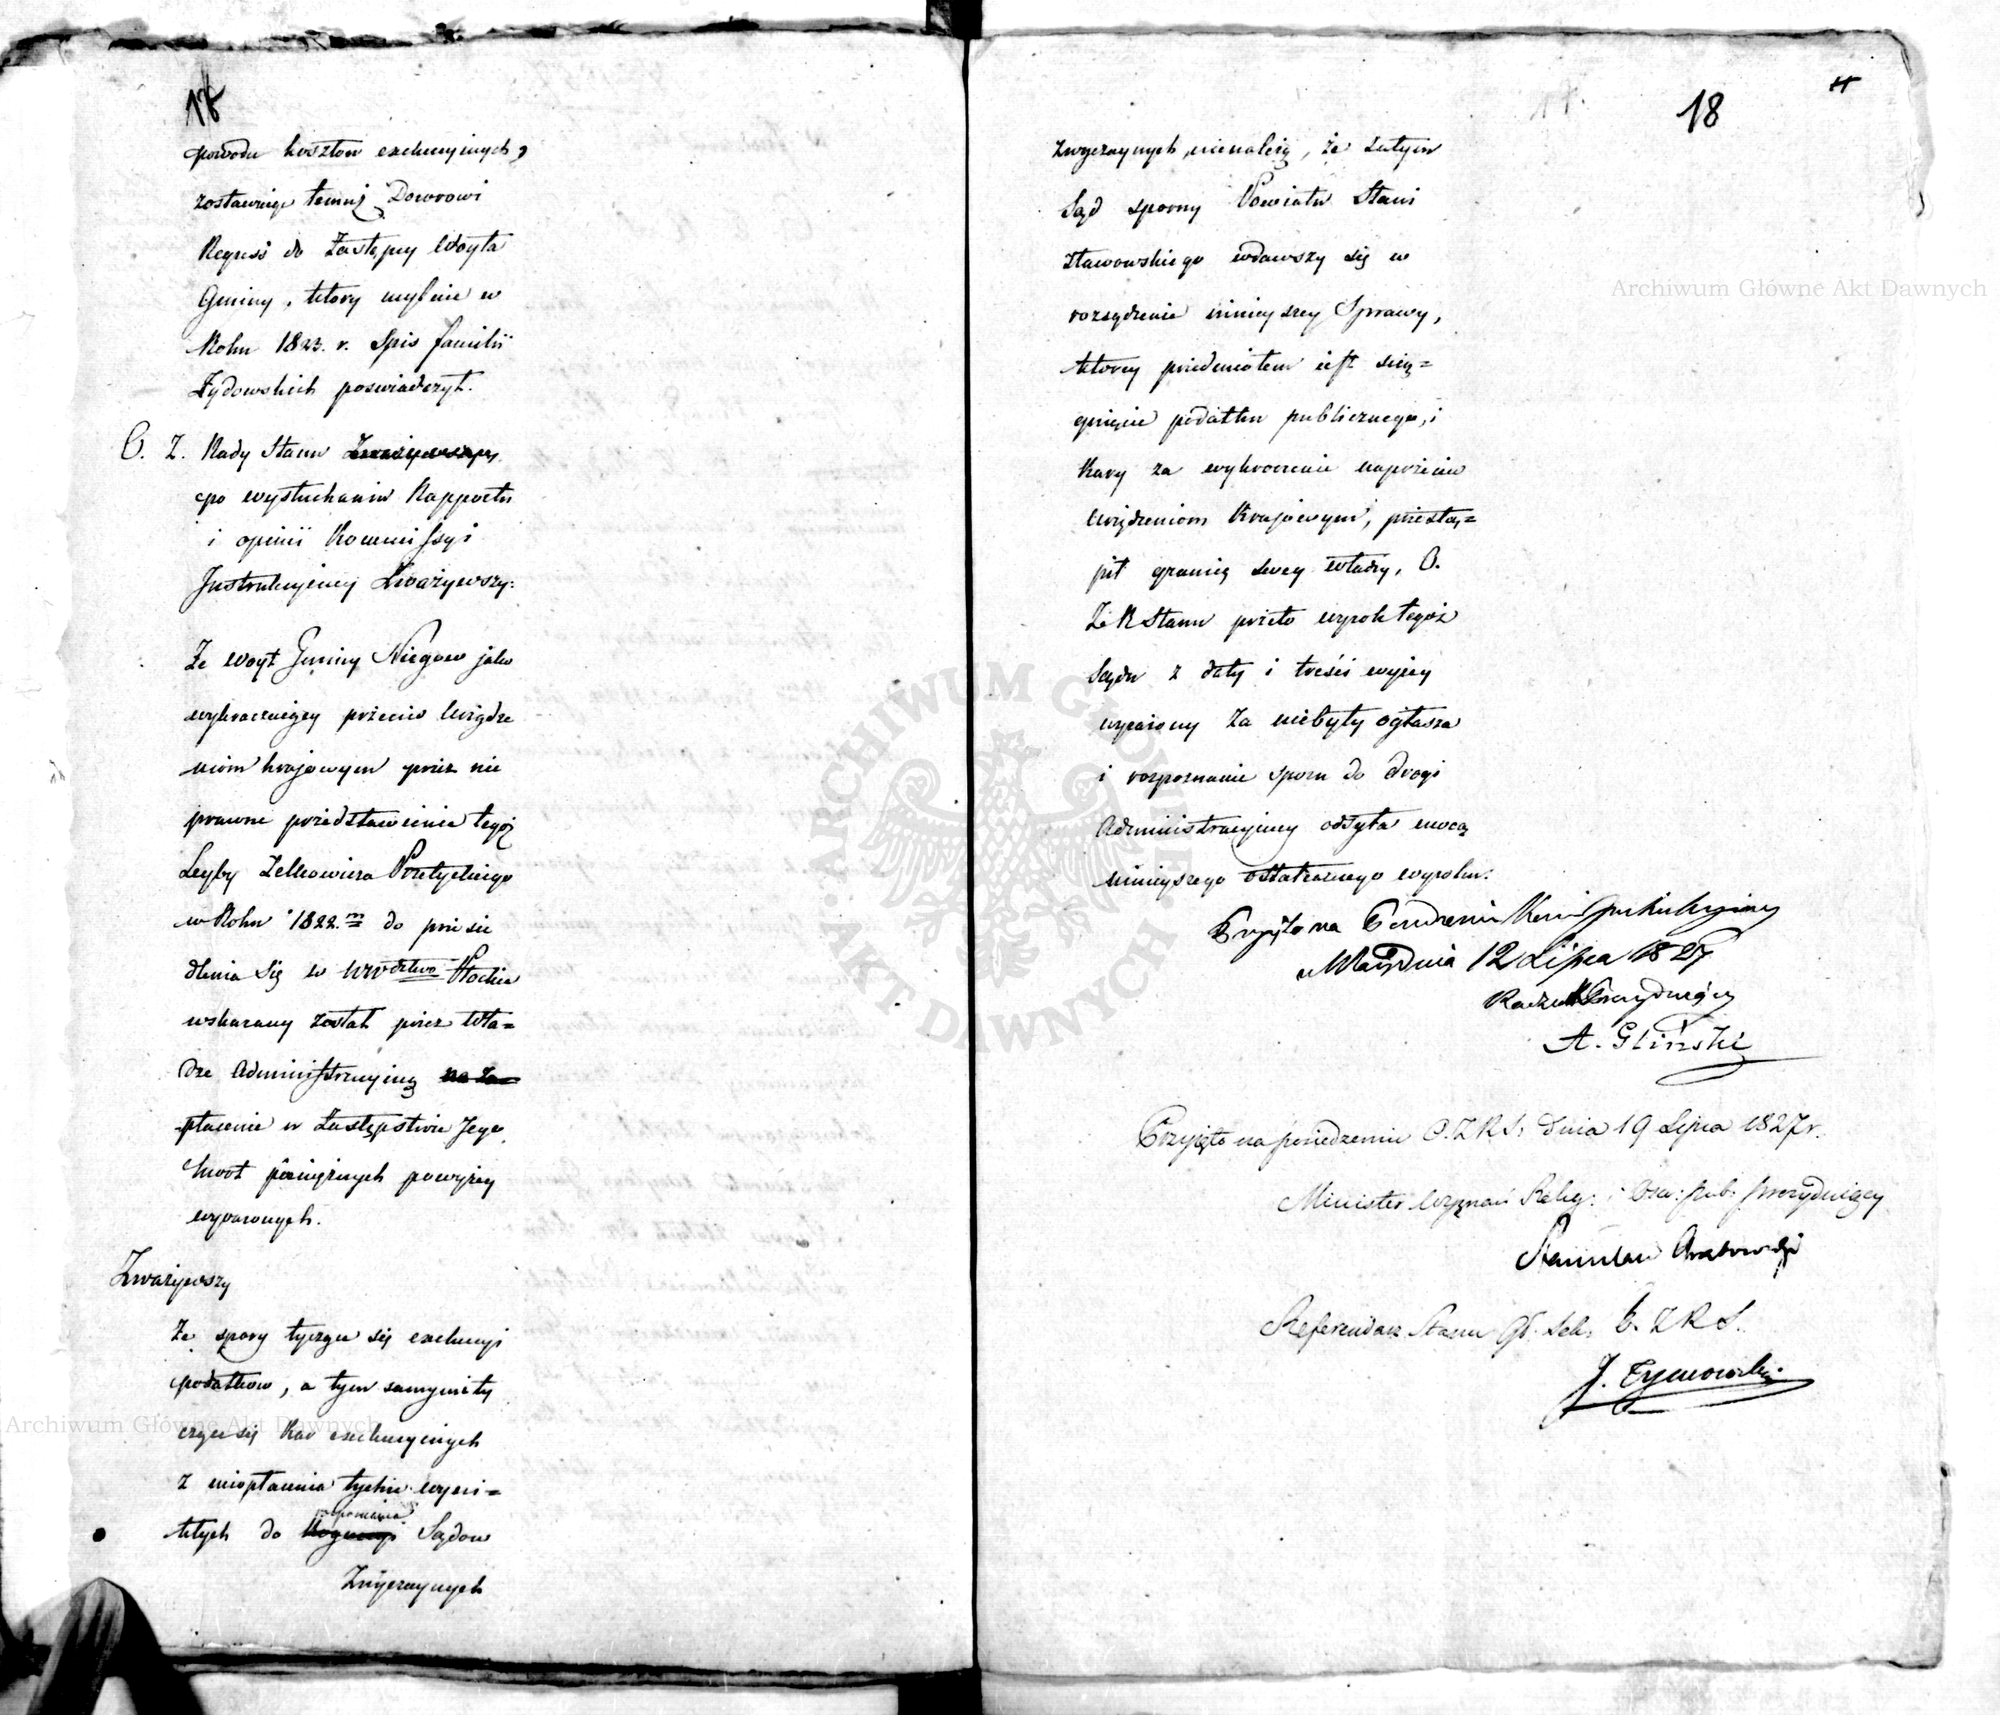 17
powodu kosztow exekucyinych,
zostawuiąc temuż Dworowi
Regress do Zastępcy Woyta
Gminy, ktory mylnie w
Roku 1823. r. Spis familii
Żydowskich poswiadczył.
O. Z. Rady Stanu Zważywszy
po wysłuchaniu Rapportu
i opinii Kommissyi
Instrukcyiney Zważywszy:
Że Woyt Gminy Niegow jako
wykraczaiący przeciw Urządze
niom krajowym przez nie
prawne przedstawienie tegoż
Leyby Zelkowicza Pułtyckiego
w Roku 1822.m do przesie
dlenia się w Wództwo Płockie
wskazany został przez Wła=
dze Administracyiną na za
płacenie w Zastępstwie Jego
kwot pieniężnych powyżey
wyrażonych.
Zważywszy
Że spory tyczące się exekucyi
podatkow, a tym samym i ty
czące się Kar exekucyinych
z nieopłacenia tychże wyni=
kłych do Kogniciji Sądow
rozpoznania
Zwyczaynych
18
Zwyczaynych nienależą, że zatym
Sąd sporny Powiatu Stani
sławowskiego wdawszy się w
rozsądzenie ninieyszey Sprawy,
ktorey przedmiotem iest scią=
gnięcie podatku publicznego, i
Kary za wykroczenie naprzeciw
Urządzeniom Krajowym, przestą=
pił granicę swey władzy, O.
Z. R Stanu przeto wyrok tegoż
Sądu z daty i treści wyżey
wyrażony za niebyły ogłasza
i rozpoznanie sporu do drogi
Administracyiney odsyła mocą
ninieyszego ostatecznego wyroku.
Przyięto na Posiedzeniu Kom: Instrukcyiney
dnia 12 Lipca 1827
Radca Prezyduiący
A. Gliński
Przyięto na posiedzeniu O. Z R S. dnia 19 Lipca 1827 r.
Minister Wyznań Relig: i Ośw: pub: prezyduiący
Stanisław Grabowski
Referendarz Stanu Gł. Sek. O. Z R S.
J. Tymowski
Archiwum Główne Akt Dawnych
Archiwum Główne Akt Dawnych
ARCHIWUM GŁÓWNE AKT DAWNYCH